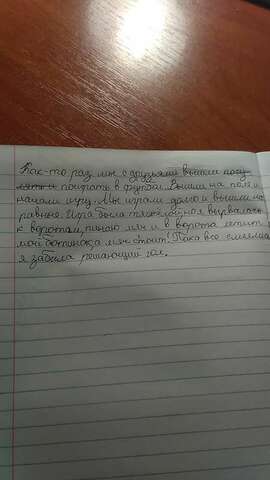 Как-то раз мы с друзьями вышли погу-
лять и поиграть в футбол. Вышли на поле и
начали игру. Мы играли долго и вышли на
равные. Игра была тяжелой, но я вырвалась
к воротам, пинаю мяч и в ворота летит
мой ботинок, а мяч стоит! Пока все смеялись
я забила решающий гол.